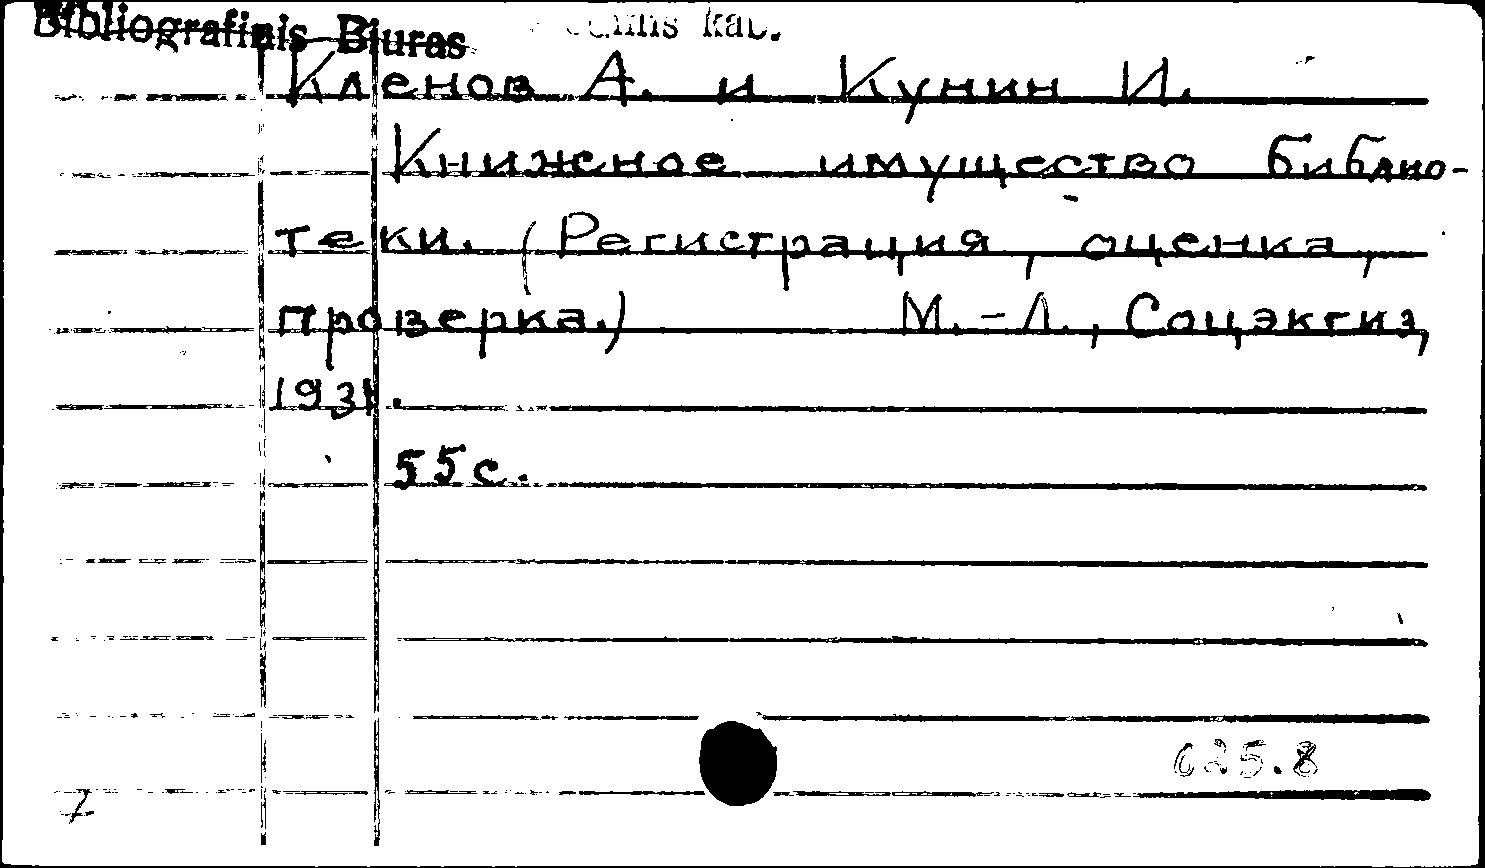 Bibliografinis Biuras kab.
Кленов А. и Кунин И.
Книжное имущество библио-
теки. (Регистрация, оценка,
проверка.) М.-Л., Соцэкгиз,
1931.
55с.
025.8